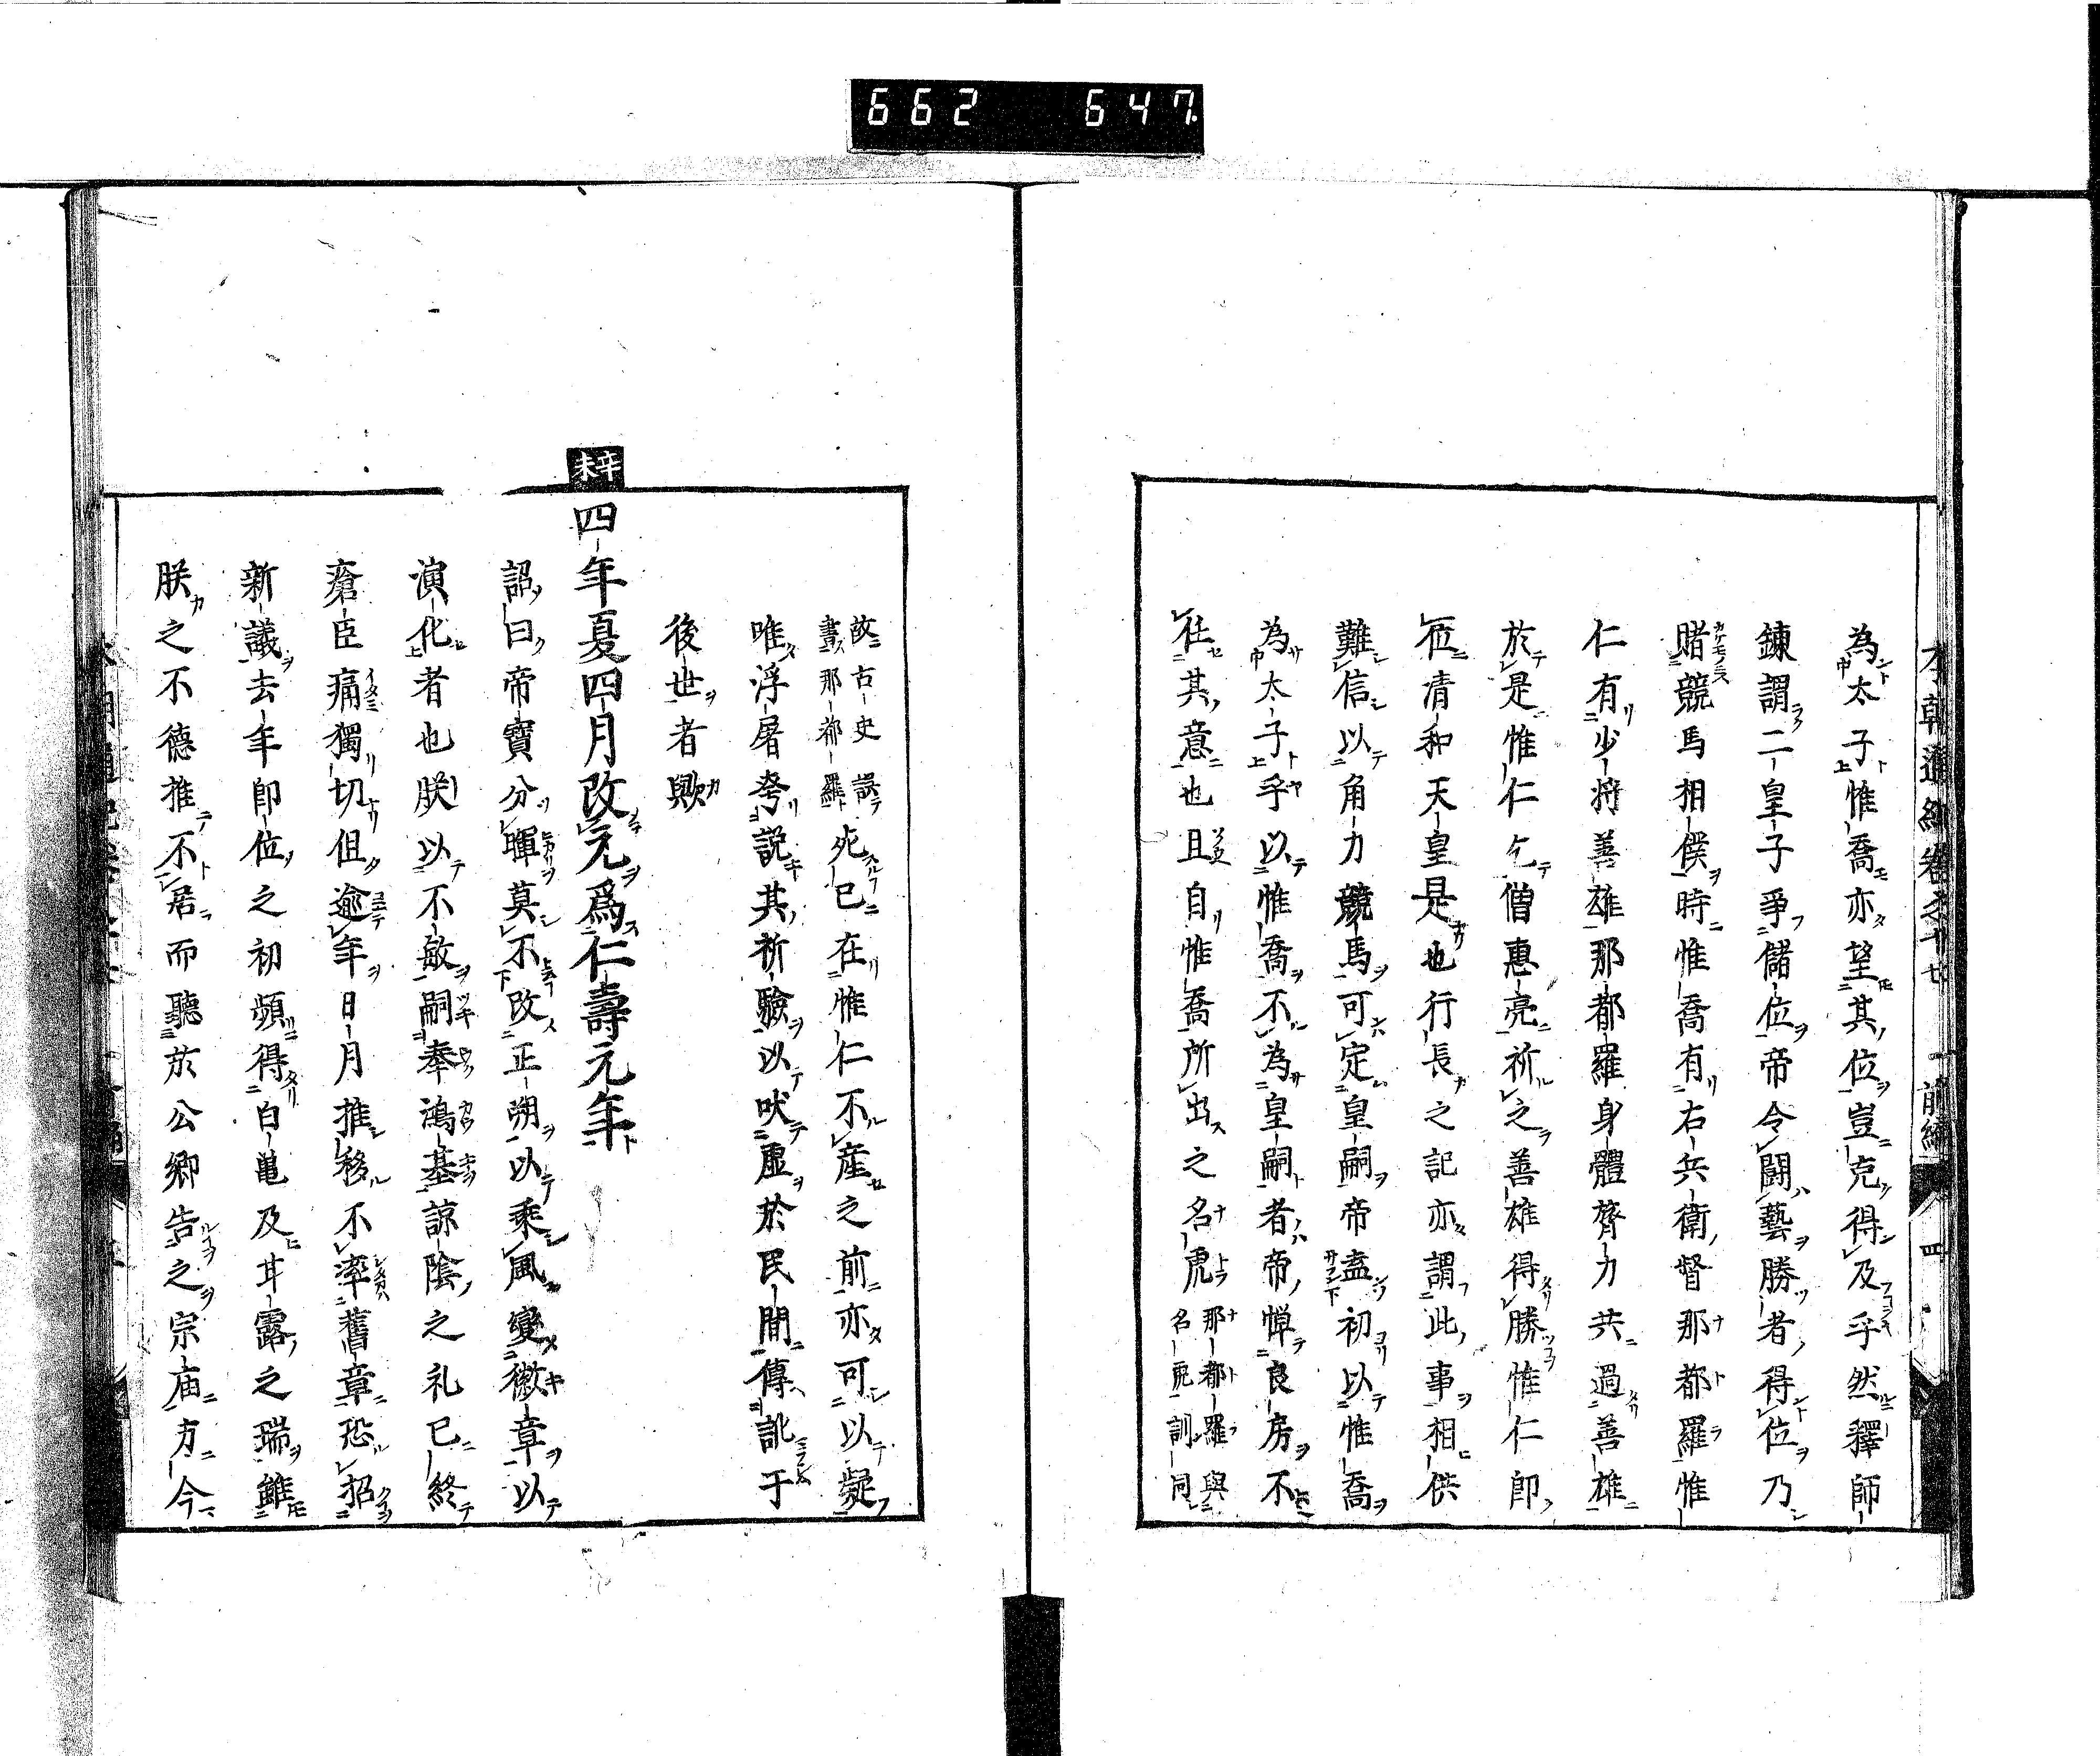 662 647
本朝通紀卷之十七 前編 四
為太子惟喬亦望其位豈克得及乎然釋師
錬謂二皇子爭儲位帝令闘藝勝者得位乃
賭競馬相僕時惟喬有右兵衛督那都羅惟
仁有少將善雄那都羅身體膂力共過善雄
於是惟仁乞僧惠亮祈之善雄得勝惟仁即
位清和天皇是也行長之記亦謂此事相供
難信以角力競馬可定皇嗣帝盍初以惟喬
為太子乎以惟喬不為皇嗣者帝憚良房不
任其意也且自惟喬所出之名虎 那都羅與名虎訓同
故古史誤書那都羅 死已在惟仁不産之前亦可以疑
唯浮屠夸說其祈驗以吠虛於民間傳訛于
後世者歟
辛未
四年夏四月改元爲仁壽元年
詔曰帝寶分暉莫不改正朔以乘風變徽章以
演化者也朕以不敏嗣奉鴻基諒陰之礼已終
瘡臣痛獨切但逾年日月推移不率舊章恐招
新譏去年即位之初頻得白亀及甘露之瑞雖
朕之不德推不居而聽於公卿告之宗庙方今